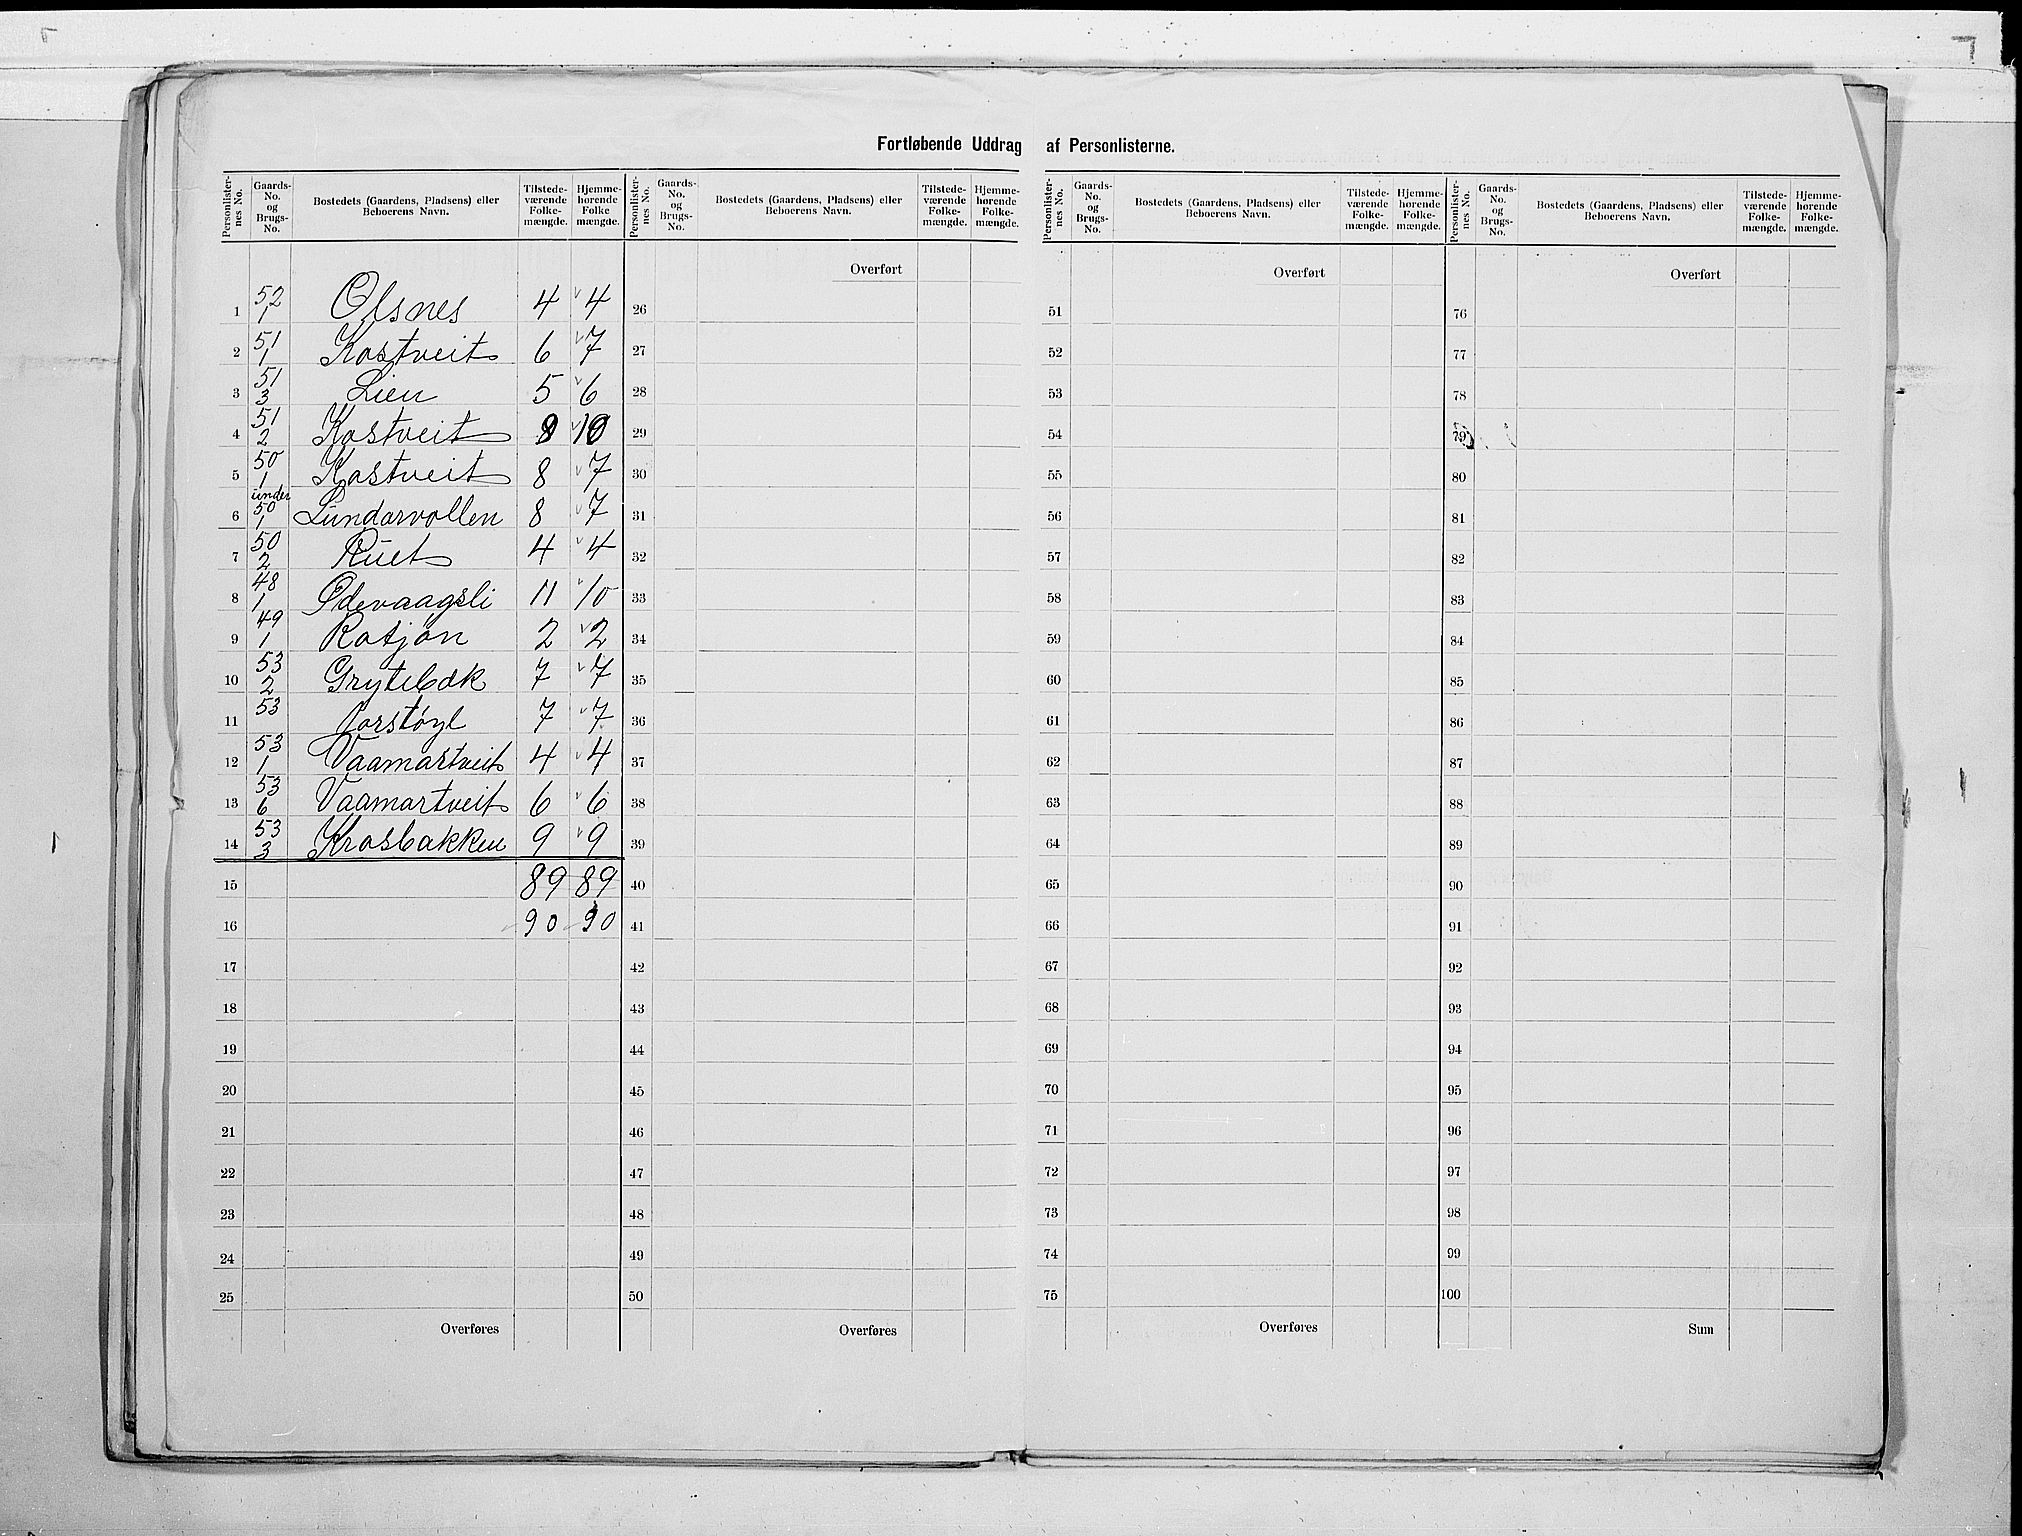 Fortløbende Uddrag af Personlisterne.
Personlister-nes No. | Gaards-No. og Brugs-No. | Bostedets (Gaardens, Pladsens) eller Beboerens Navn. | Tilstede-værende Folke-mængde. | Hjemme-hørende Folke mængde.
1 52/1 Olsnes 4 4
2 51/1 Kostveit 6 7
3 51/3 Lien 5 6
4 51/2 Kostveit 9 10
5 50/1 Kostveit 8 7
6 under 50/1 Lundarvollen 8 7
7 50/2 Ruet 4 4
8 48/1 Ødevaagsli 11 10
9 49/1 Rotjøn 2 2
10 53/2 Grytebæk 7 7
11 53 Vorstøyl 7 7
12 53/1 Vaamartveit 4 4
13 53/6 Vaamartveit 6 6
14 53/3 Krosbakken 9 9
15 89 89
16 90 90
17
18
19
20
21
22
23
24
25
Overføres
Personlister-nes No. | Gaards-No. og Brugs-No. | Bostedets (Gaardens, Pladsens) eller Beboerens Navn. | Tilstede-værende Folke-mængde. | Hjemme-hørende Folke-mængde.
Overført
26
27
28
29
30
31
32
33
34
35
36
37
38
39
40
41
42
43
44
45
46
47
48
49
50
Overføres
Personlister-nes No. | Gaards-No. og Brugs-No. | Bostedets (Gaardens, Pladsens) eller Beboerens Navn. | Tilstede-værende Folke-mængde. | Hjemme-hørende Folke-mængde.
Overført
51
52
53
54
55
56
57
58
59
60
61
62
63
64
65
66
67
68
69
70
71
72
73
74
75
Overføres
Personlister-nes No. | Gaards-No. og Brugs-No. | Bostedets (Gaardens, Pladsens) eller Beboerens Navn. | Tilstede-værende Folke-mængde. | Hjemme-hørende Folke-mængde.
Overført
76
77
78
79
80
81
82
83
84
85
86
87
88
89
90
91
92
93
94
95
96
97
98
99
100
Sum